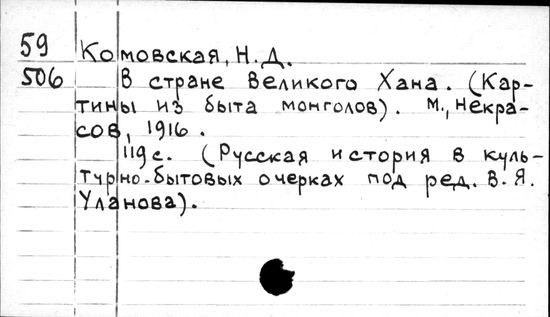 59 Комовская, Н.Д.
506 В стране Великого Хана. (Кар-
тины из быта монголов). М., Некра-
сов, 1916.
119с. (Русская история в куль-
турно-бытовых очерках под ред. В.Я.
Уланова).